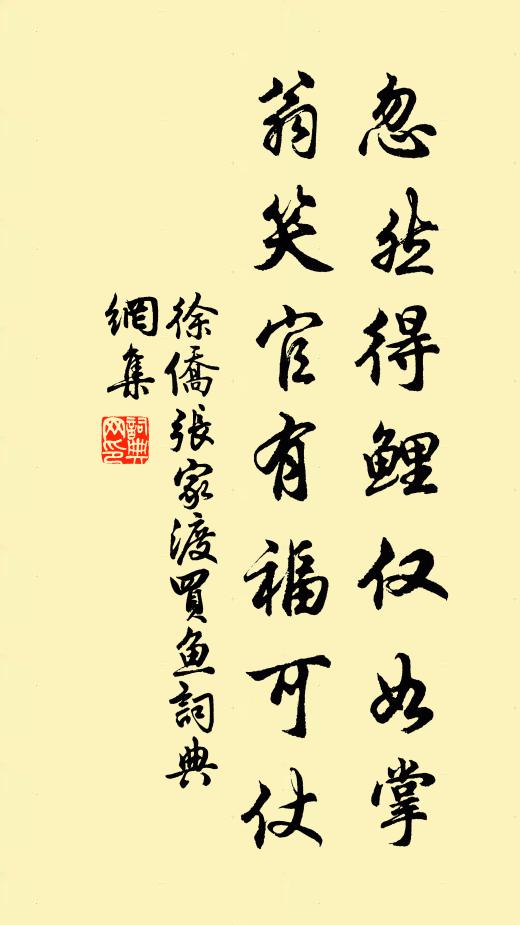 忽然得鲤仅如掌
翁笑官有福可仗
徐僑張家渡買魚詞典
網集
詞典網印